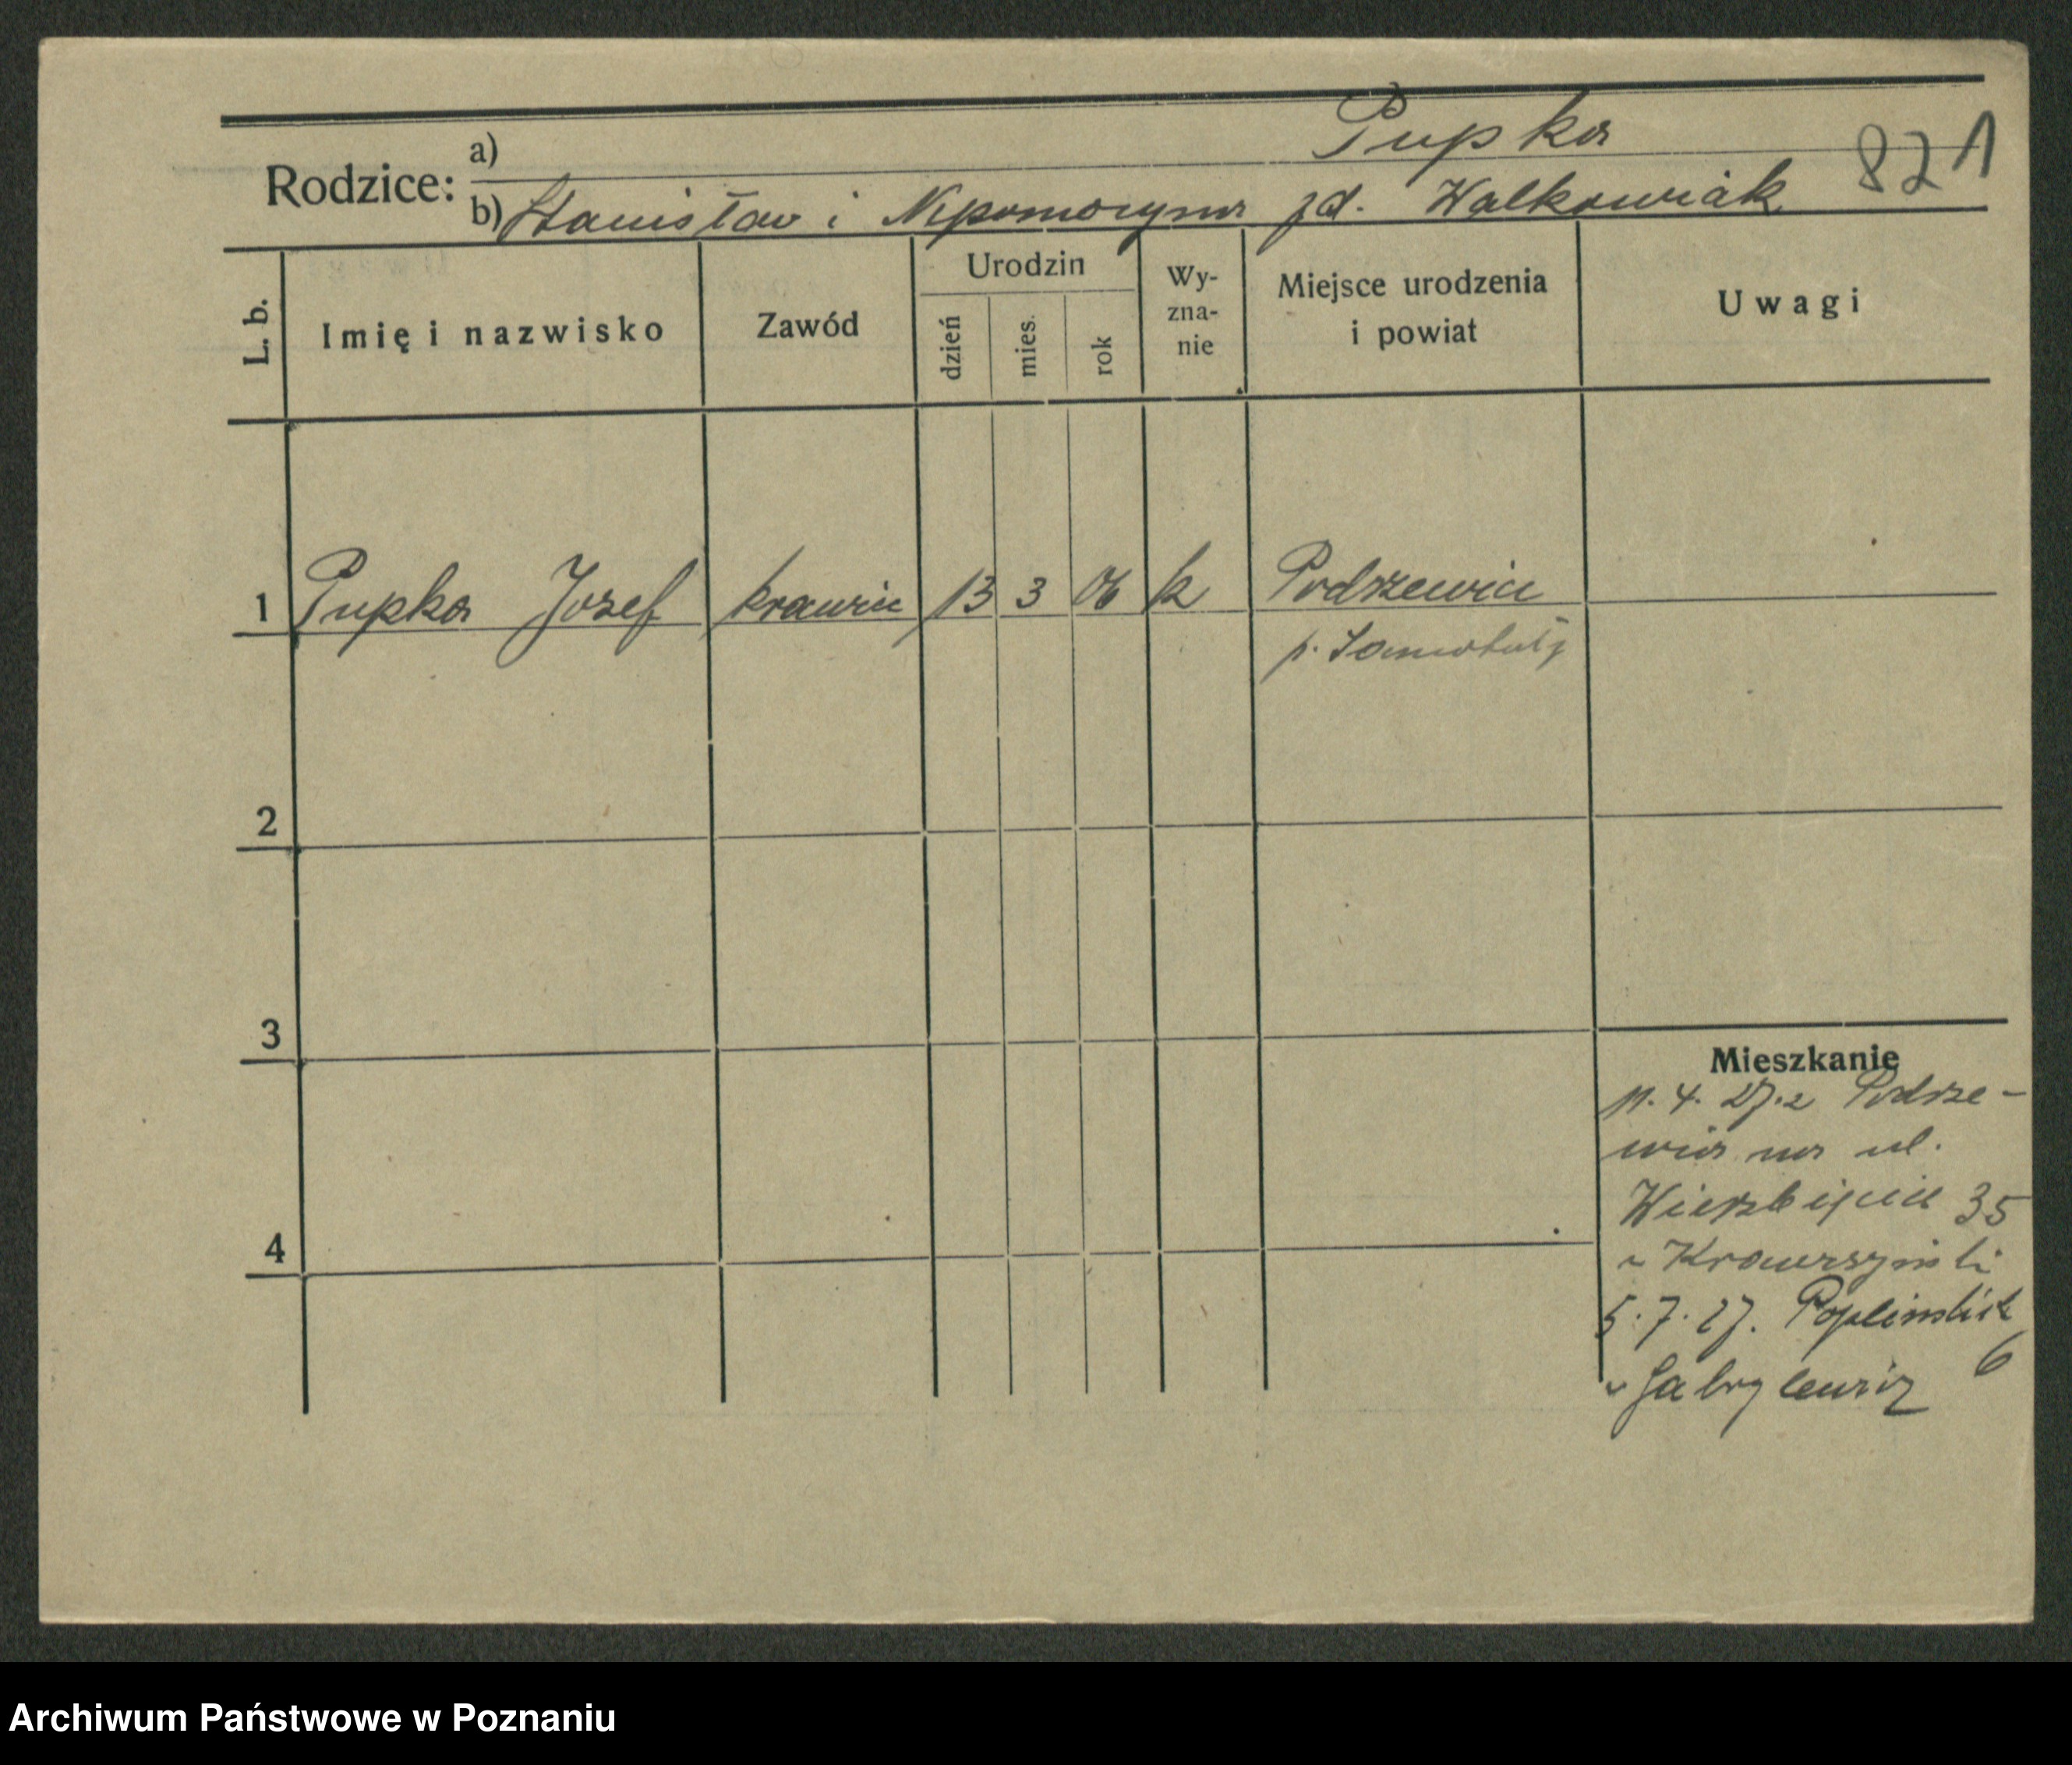 Pupka 821
Rodzice: a)
b) Stanisław i Nepomocyna zd. Walkowiak
L. b. Imię i nazwisko Zawód Urodzin dzień mies. rok Wy-zna-nie Miejsce urodzenia i powiat Uwagi
1 Pupka Jozef krawiec 13 3 06 k Podrzewie
p. Szamotuły
2
3
4
Mieszkanie
11. 4. 27. z Podrze-
wia na ul.
Wierzbięcice 35
u Krawczyński
5. 7. 27. Poplińskich
6
u Gabrylewicz
Archiwum Państwowe w Poznaniu